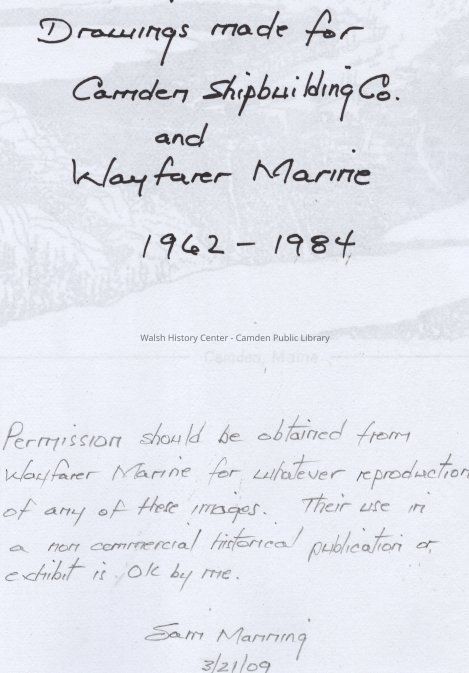 Drawings made for
Camden Shipbuilding Co.
and
Wayfarer Marine
1962 - 1984
Walsh History Center - Camden Public Library
Camden, Maine
Permission should be obtained from
Wayfarer Marine for whatever reproduction
of any of these images. Their use in
a non commercial historical publication or
exhibit is OK by me.
Sam Manning
3/21/09